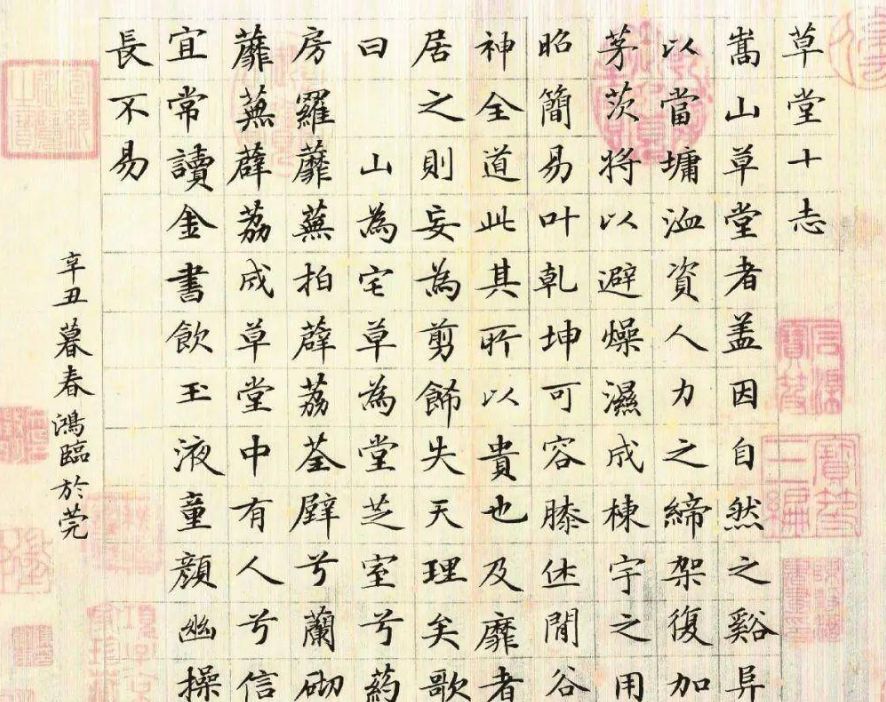 草堂十志
嵩山草堂者盖因自然之谿阜
以當墉洫資人力之締架復加
茅茨將以避燥濕成棟宇之用
昭簡易叶乾坤可容膝休閒谷
神全道此其所以貴也及靡者
居之則妄為剪餙失天理矣歌
曰 山為宅草為堂芝室兮葯
房羅蘼蕪拍薜荔荃壁兮蘭砌
蘼蕪薜荔成草堂中有人兮信
宜常讀金書飲玉液童顏幽操
長不易
辛丑暮春鴻臨於莞